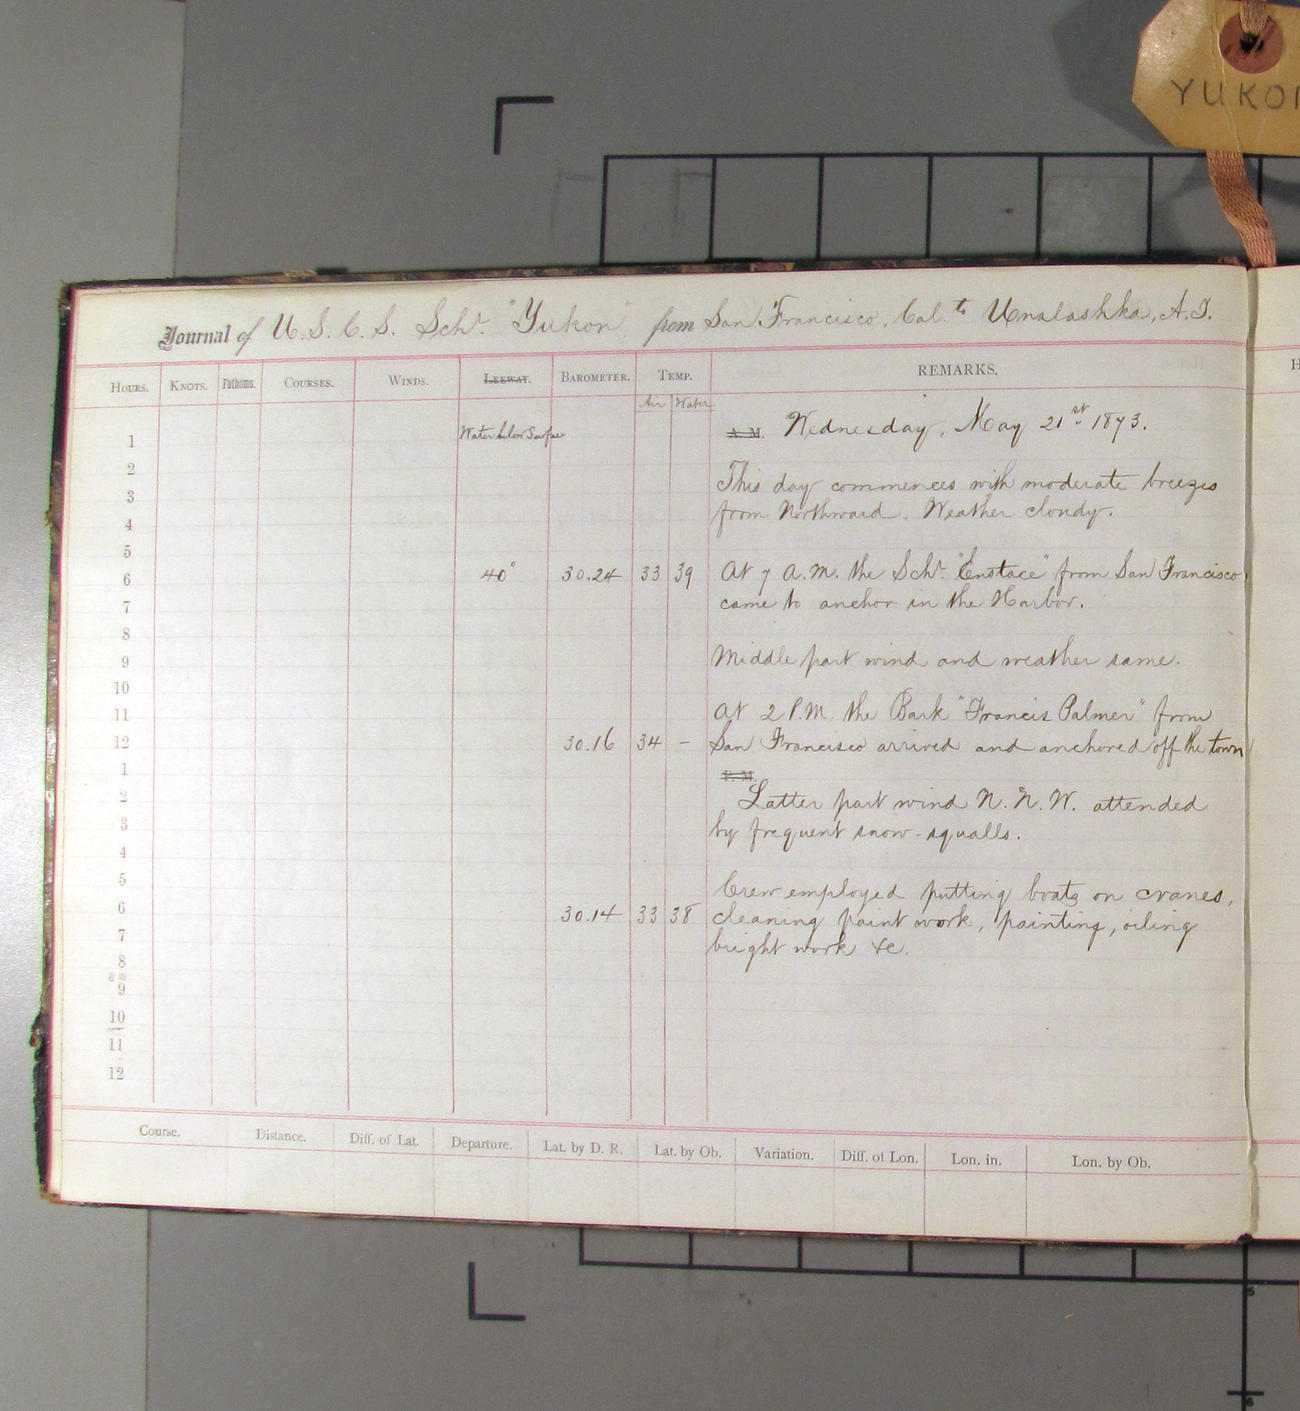 YUKON
Journal of U. S. C. S. Schr. "Yukon" from San Francisco, Cal. to Unalashka, A. T.
HOURS. KNOTS. Fathoms. COURSES. WINDS. LEEWAY. BAROMETER. TEMP. REMARKS.
Air Water
Water below Surface
A. M. Wednesday, May 21st 1873.
1
2
This day commences with moderate breezes
3
from Northward. Weather cloudy.
4
5
6 40° 30.24 33 39 At 7 A.M. the Schr. "Eustace" from San Francisco,
7 came to anchor in the Harbor.
8
9 Middle part wind and weather same.
10
11 At 2 P.M. the Bark "Francis Palmer" from
12 30.16 34 - San Francisco arrived and anchored off the town
1 P. M.
2 Latter part wind N. N. W. attended
3 by frequent snow-squalls.
4
5 Crew employed putting boats on cranes,
6 30.14 33 38 cleaning paint work, painting, oiling
7 bright work &c.
8
9
10
11
12
Course. Distance. Diff. of Lat. Departure. Lat. by D. R. Lat. by Ob. Variation. Diff. of Lon. Lon. in. Lon. by Ob.
5
6